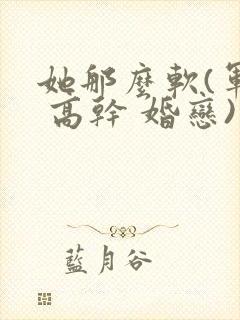 她那麼軟(軍
高幹 婚戀)
藍月谷